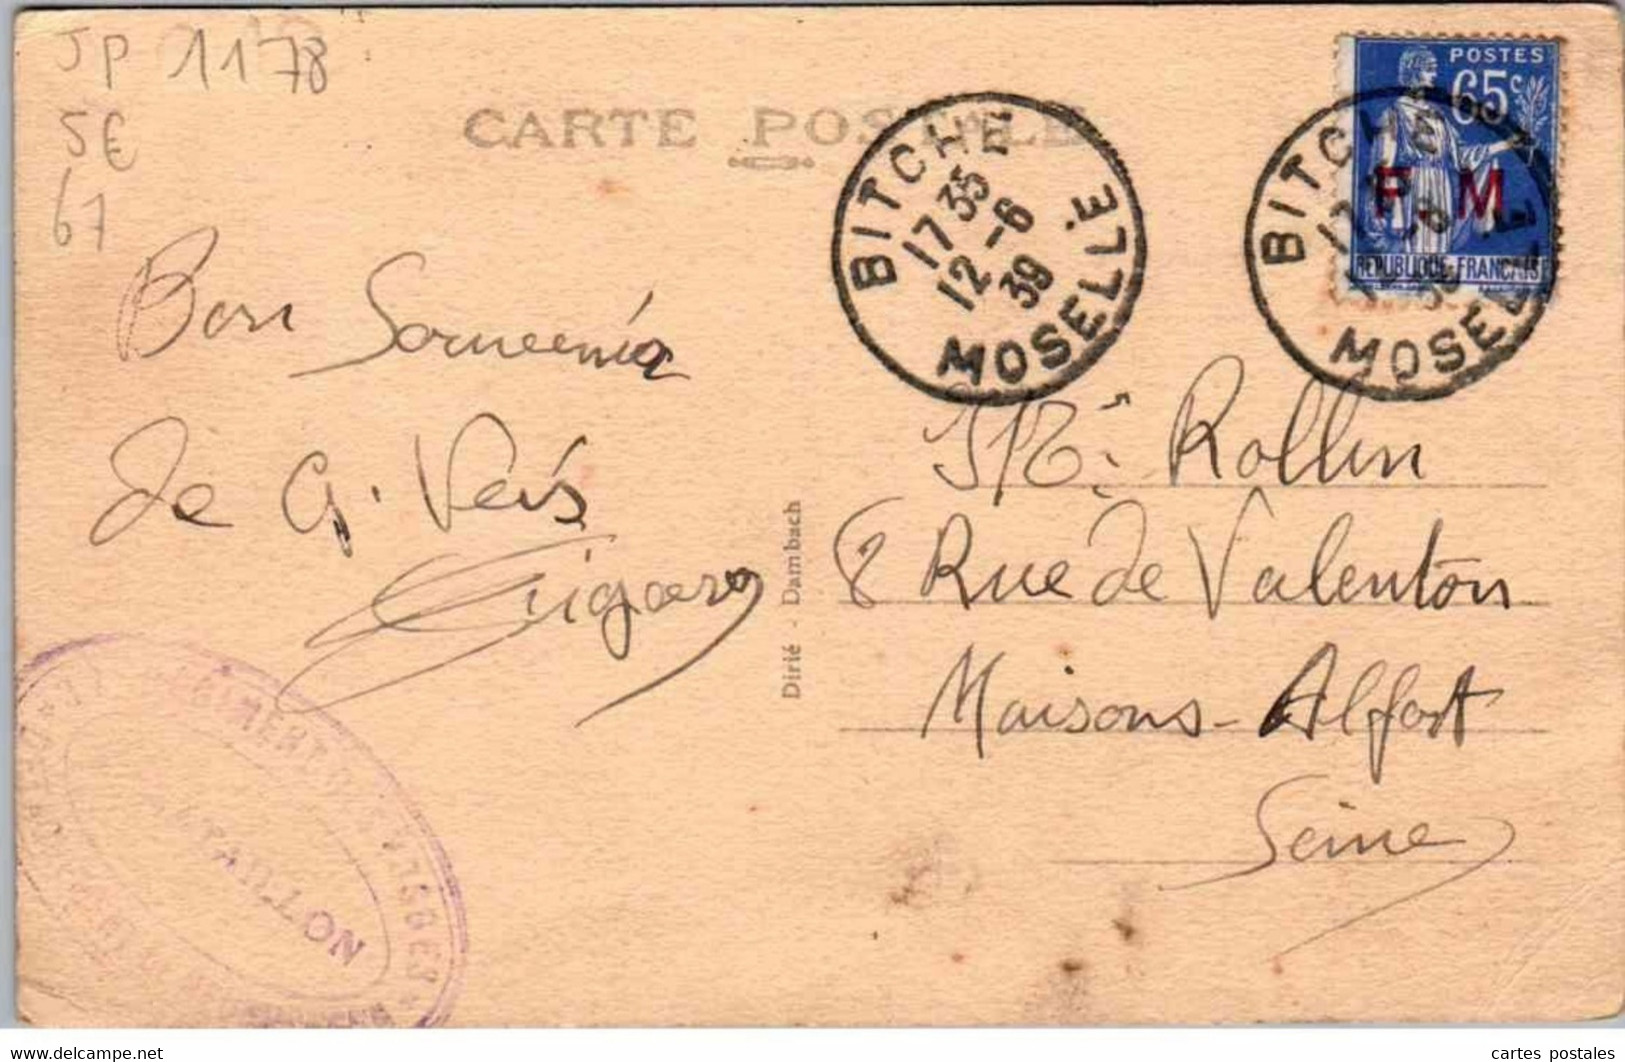 JP 1178
5€
67
CARTE POSTALE
BITCHE
17 35
12 -6
39
MOSELLE
POSTES
65c
F M
REPUBLIQUE FRANCAISE
BITCHE
MOSELLE
Bon Souvenir
de G.
Rollin
8 Rue de Valenton
Maisons-Alfort
Seine
Dirié - Dambach
BATAILLON
www.delcampe.net
cartes postales